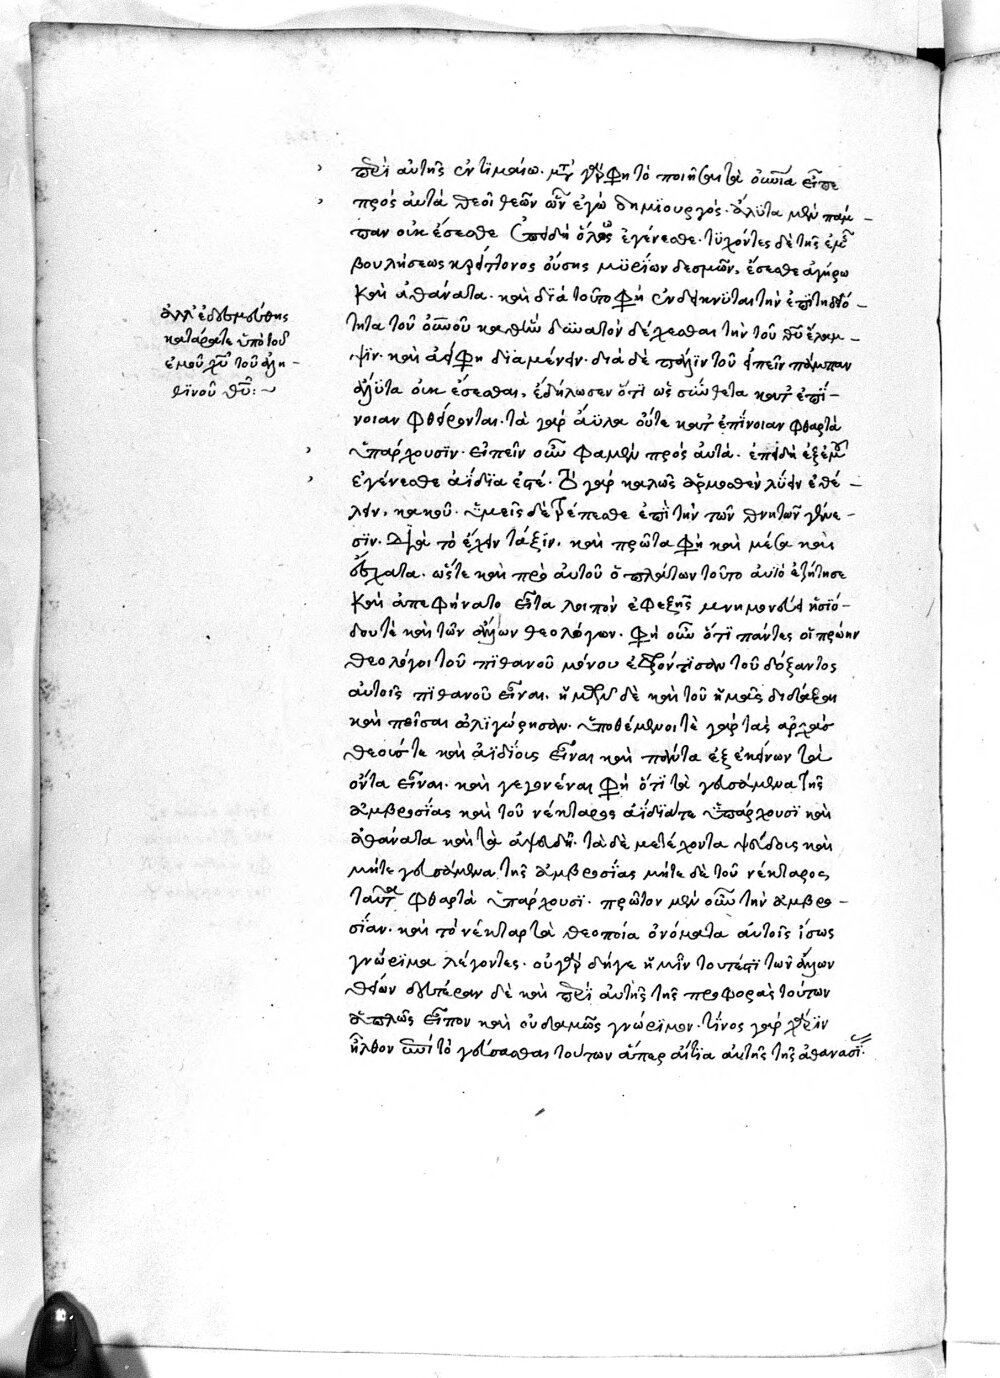 περὶ αὐτῆς ἐν τιμαίω. μετὰ γὰρ φη τὸ ποιῆσαι τὰ οὐνια εἶπε
πρὸς αὐτά θεοὶ θεῶν ὧν ἐγὼ δημϊουργός. ἄλϋτα μὲν πάμ-
παν οὐκ ἔσεσθε ἐπειδὴ ὅλως ἐγένεσθε. τϋχόντες δὲ τῆς ἐμῆς
βουλήσεως κρείττονος οὔσης μϋρΐων δεσμῶν, ἔσεσθε ἀγήρω
καὶ ἀθάνατα. καὶ διὰ τοῦτο φη ἐνδείκνϋται τὴν ἐπιτηδϊό-
τητα τοῦ οὐνοῦ καθ' ἣν δυνατὸν δέχεσθαι τὴν τοῦ θυ ἔλαμ-
ψϊν. καὶ ἀεὶ φη διαμένειν. διὰ δὲ πάλϊν τοῦ εἰπεῖν πάμπαν
ἄλϋτα οὐκ ἔσεσθαι, ἐδήλωσεν ὅτϊ ὡς σύνθετα κατ' ἐπΐ-
νοιαν φθείρονται. τὰ γὰρ ἄϋλα οὔτε κατ' ἐπΐνοιαν φθαρτὰ
ὑπάρχουσϊν. εἰπεῖν οὖν φαμὲν πρὸς αὐτά. ἐπειδὴ ἐξ ἐμοῦ
ἐγένεσθε ἀΐδϊα ἐστέ. τὸ γὰρ καλῶς ἁρμοσθὲν λύειν ἐθέ-
λειν, κακοῦ. ὑμεῖς δὲ τρέπεσθε ἐπὶ τὴν τῶν θνητῶν γένε-
σϊν. διὰ τὸ ἔχειν τάξϊν. καὶ πρῶτα φη καὶ μέσα καὶ
ἔσχατα. ὥστε καὶ πρὸ αὐτοῦ ὁ πλάτων τοῦτο αὐτὸ ἐζήτησε
καὶ ἀπεφήνατο εἶτα λοιπὸν ἐφεξῆς μνημονεύει ἡσϊό-
δου τὲ καὶ τῶν ἄλλων θεολόγων. φη οὖν ὅτϊ πάντες οἱ πρώην
θεολόγοι τοῦ πϊθανοῦ μόνου ἐφρόντισαν τοῦ δόξαντος
αὐτοῖς πϊθανοῦ εἶναι. ἡμῶν δὲ καὶ τοῦ ἡμᾶς διδάξαι
καὶ πεῖσαι ὠλϊγώρησαν. ὑποθέμενοι τὲ γὰρ τὰς ἀρχὰς
θεούς τε καὶ ἀϊδΐους εἶναι καὶ πάντα ἐξ ἐκείνων τὰ
ὄντα εἶναι. καὶ γεγονέναι φη ὅτϊ τὰ γευσάμενα τῆς
ἀμβροσΐας καὶ τοῦ νέκταρος ἀΐδϊα τε ὑπάρχουσϊ καὶ
ἀθάνατα καὶ τὰ ἀψευδῆ. τὰ δὲ μετέχοντα ψεύδους καὶ
μήτε γευσάμενα τῆς ἀμβροσΐας μήτε δὲ τοῦ νέκταρος
ταῦτα φθαρτὰ ὑπάρχουσϊ. πρῶτον μὲν οὖν τὴν ἀμβρο-
σΐαν. καὶ τὸ νέκταρ τὰ θεοποία ὀνόματα αὐτοῖς ἴσως
γνώρϊμα λέγοντες. οὐ γὰρ δήγε ἡμῖν τουτέστϊ τῶν ἄλλων
θείων δευτέραν δὲ καὶ περὶ αὐτῆς τῆς προφορᾶς τούτων
ἁπλῶς εἶπον καὶ οὐδαμῶς γνώριμον. τΐνος γὰρ χάρϊν
ἦλθον ἐπὶ τὸ γεύσασθαι τούτων ἅπερ αἴτϊα αὐτῆς τῆς ἀθανασΐ.
ἀλλ' ἐδογματΐσθης
κατάρατε ὑπὸ τοῦ
ἐμοῦ χυ τοῦ ἀλη-
θϊνοῦ θυ:~